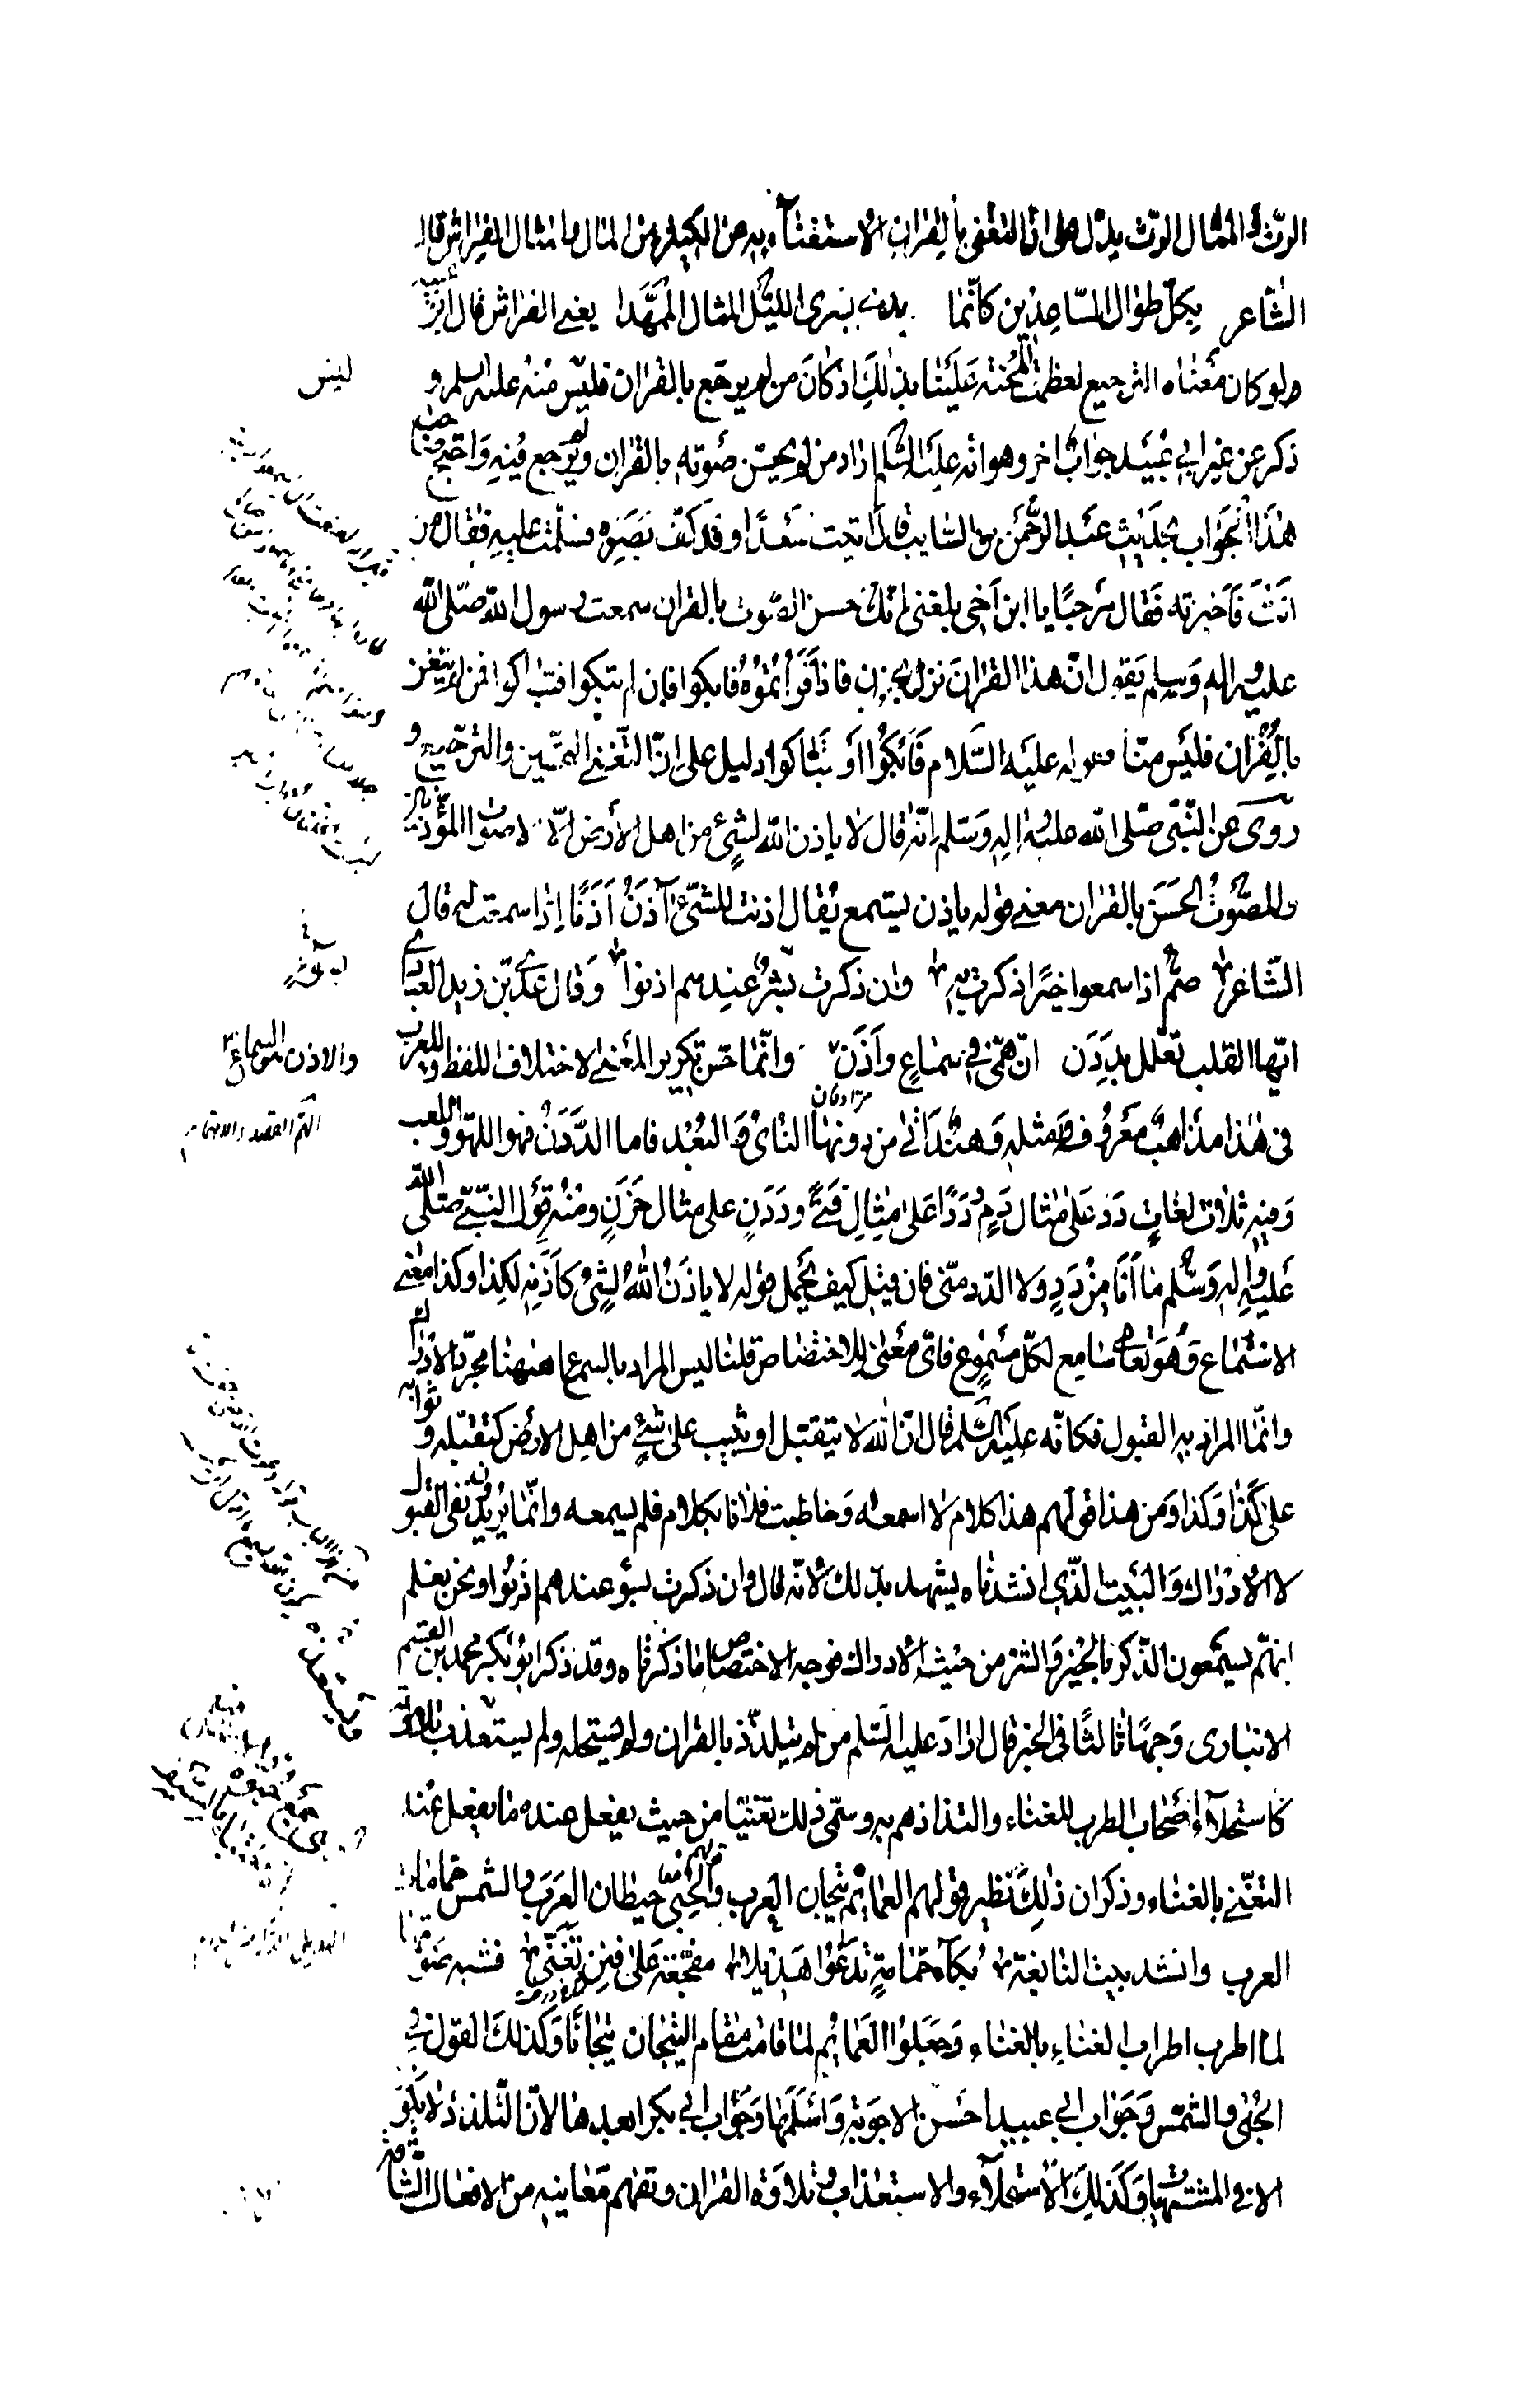 الرّث والمثال الرّث يدلّ على انّ التغنّى بالقران الاستغناء به عن الكثير من المال والمثال الفراش قال
الشاعر بكلّ طوال السّاعدين كانّما يرى الليل المثال الممهّدا يعنى الفراش قال ابو عبيد
ولو كان معناه الترجيع لعظمت المحنة علينا بذلك اذ كان من لم يرجّع بالقران فليس منه عليه السلم و
ذكر عن غير ابى عبيد جواب اخر وهو انّه عليه السّلم اراد من لم يحسّن صوته بالقران ولم يرجّع فيه واحتجّ صاحب
هذا الجواب بحديث عبد الرّحمن بن السّايب قال اتيت سعدًا وقد كفّ بصره فسلّمت عليه فقال من
انت فاخبرته فقال مرحبًا يا ابن اخى بلغنى انّك حسن الصّوت بالقران سمعت رسول الله صلّى الله
عليه واله وسلم يقول انّ هذا القران نزل بحزن فاذا قراتموه فابكوا فان لم تبكوا فتباكوا فمن لم يتغنّ
بالقران فليس منّا فقوله عليه السّلام فابكوا او تباكوا دليل على انّ التّغنّى التحنين والترجيع و
روى عن النّبى صلّى الله عليه واله وسلّم انّه قال لا ياذن الله لشئ من اهل الأرض الّا لاصوات المؤذّنين
وللصّوت الحسن بالقران معنى قوله ياذن يستمع يقال اذنت للشّئ اذن اذنًا اذا سمعت له قال
الشّاعر صمّ اذا سمعوا خيرًا ذكرت به وان ذكرت بشرّ عندهم اذنوا وقال عدىّ بن زيد العبادى
ايّها القلب تعلّل بددن انّ همّى فى سماع واذن وانّما حسّن تكرير المعنى لاختلاف اللفظ وللعرب
فى هذا مذاهب معروف ومثله وهند اتى من دونها الناى والبعد فاما الدّدن فهو اللهو واللعب
وفيه ثلاث لغات دد على مثال دم وددًا على مثال فتى وددن على مثال حزن ومنه قول النّبىّ صلّى الله
عليه واله وسلّم ما انا من دد ولا الدّد منّى فان قيل كيف يحمل قوله لا ياذن الله لشئ كاذنه لكذا وكذا معنى
الاستماع وهو تعالى سامع لكلّ مسموع فاىّ معنى للاختصاص قلنا ليس المراد بالسمع هيهنا مجرّد الادراك
وانّما المراد به القبول فكانّه عليه السّلم قال انّ الله لا يتقبل او يثيب على شئ من اهل الارض كتقبّله وثوابه
على كذا وكذا ومن هذا قولهم هذا كلام لا اسمعه وخاطبت فلانا بكلام فلم يسمعه وانّما يريدون نفى القبول
لا الادراك والبيت الذّى انشدناه يشهد بذلك لانّه قال وان ذكرت بسوء عندهم اذنوا ونحن نعلم
انهم يستمعون الذّكر بالخير والشرّ من حيث الادراك فوجه الاختصاص ما ذكرناه وقد ذكر ابو بكر محمد بن القسم
الانبارى وجهًا ثالثًا فى الخبر قال اراد عليه السّلم من لم يتلذّذ بالقران ولم يستحله ولم يستعذب تلاوته
كاستحلاء اصحاب الطرب للغناء والتذاذهم به وسمّى ذلك تغنّيًا من حيث يفعل عنده ما يفعل عند
التغنّى بالغناء وذكر ان ذلك نظير قولهم العمائم تيجان العرب والحبى حيطان العرب والشمس حمامات
العرب وانشد بيت النابغة بكاء حمامة تدعوا هديلا مفجّعة على فنن تغنّى فشبه صوتها
لما اطرب اطراب الغناء بالغناء وجعلوا العمائم لما قامت مقام التيجان تيجانًا وكذلك القول فى
الحبى والشمس وجواب ابى عبيد احسن الاجوبة واسلمها وجواب ابى بكر ابعدها لانّ التلذذ لا يكون
الا فى المشتهيات وكذلك الاستحلاء والاستعذاب وتلاوة القران وتفهم معانيه من الافعال الشّاقة
ليس
والاذن السماع
مترادفان
الهمّ القصد والاهتمام